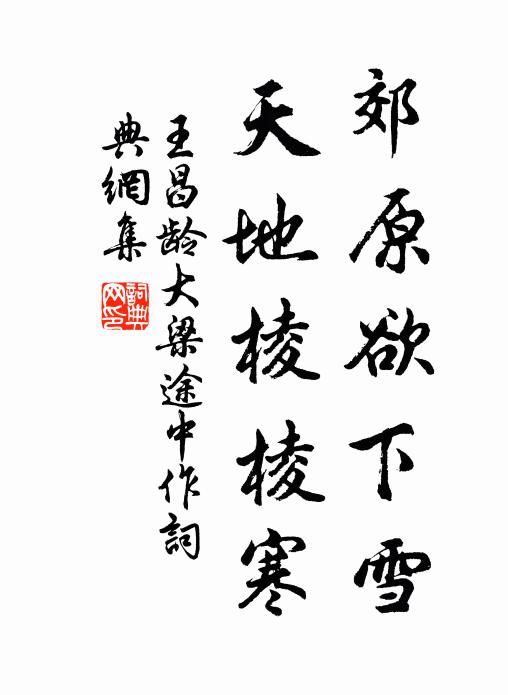 郊原欲下雪
天地棱棱寒
王昌龄大梁途中作詞
典網集
詞典
网印